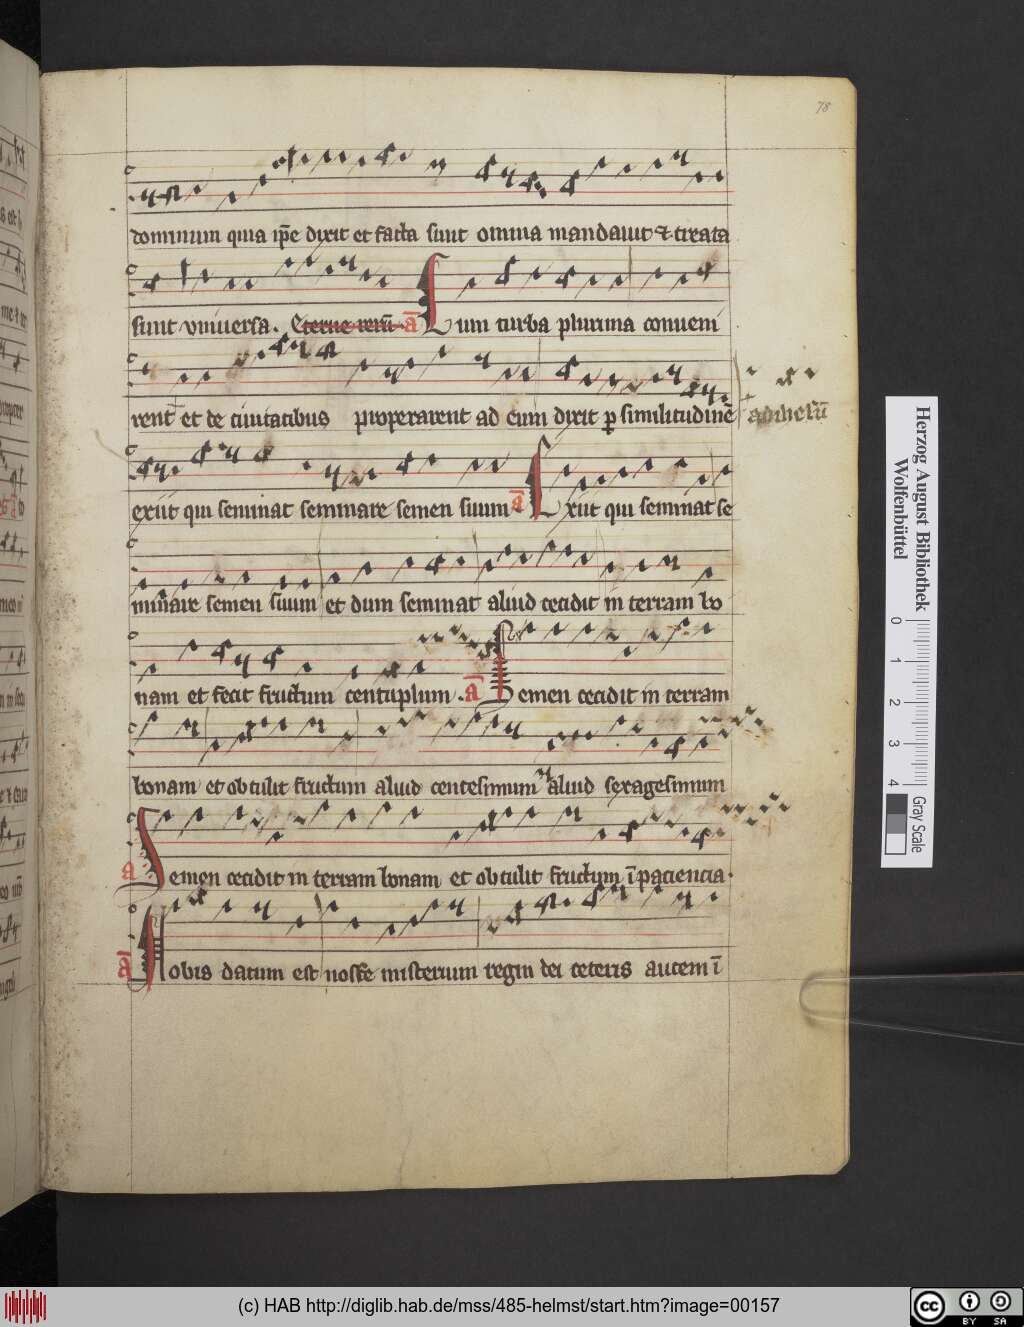 78
dominum quia ip̄e dixit et facta sunt omnia mandauit & creata
sunt vniuersa. Eterne rerū. a̅ Cum turba plurima conueni
rent et de ciuitatibus properarent ad eum dixit p similitudinē ad ihesū
exiit qui seminat seminare semen suum a̅ Exiit qui seminat se
minare semen suum et dum seminat aliud cecidit in terram bo
nam et fecit fructum centuplum. a̅ Semen cecidit in terram
bonam et obtulit fructum aliud centesimum aliud sexagesimum
a Semen cecidit in terram bonam et obtulit fructum ī paciencia.
a̅ Uobis datum est nosse misterium regni dei ceteris autem ī
Herzog August Bibliothek
Wolfenbüttel
0 1 2 3 4
Gray Scale
(c) HAB http://diglib.hab.de/mss/485-helmst/start.htm?image=00157
cc BY SA